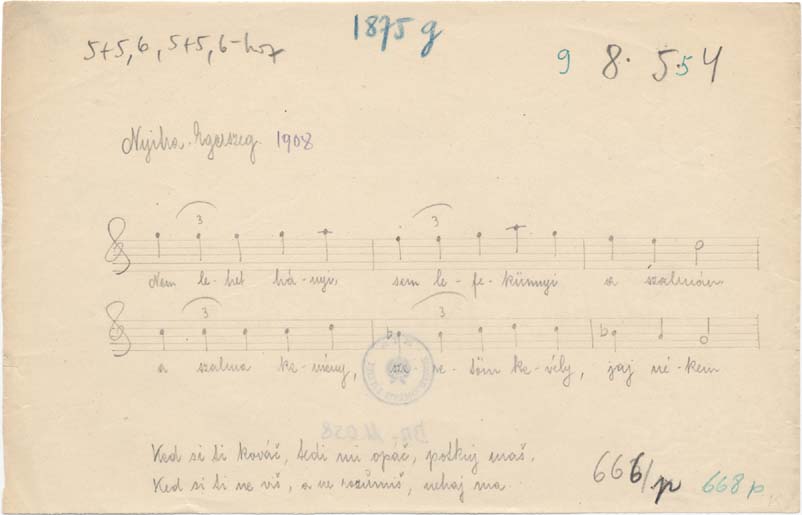 5+5, 6, 5+5, 6-hoz
1875 g
9 8. 5.5 4
Nyitra-Egerszeg 1908
3 3
Nem le-het há-nyi, sem le-fe-künnyi a szalmán
3 3
a szalma ke-mény, sze-re-töm ke-vély, jaj né-kem
Ked si ti kováč, tedi mi opáč, potkuj máš.
Ked si ti ne víš, a ne rozúmíš, nehaj ma.
666/p 668 p